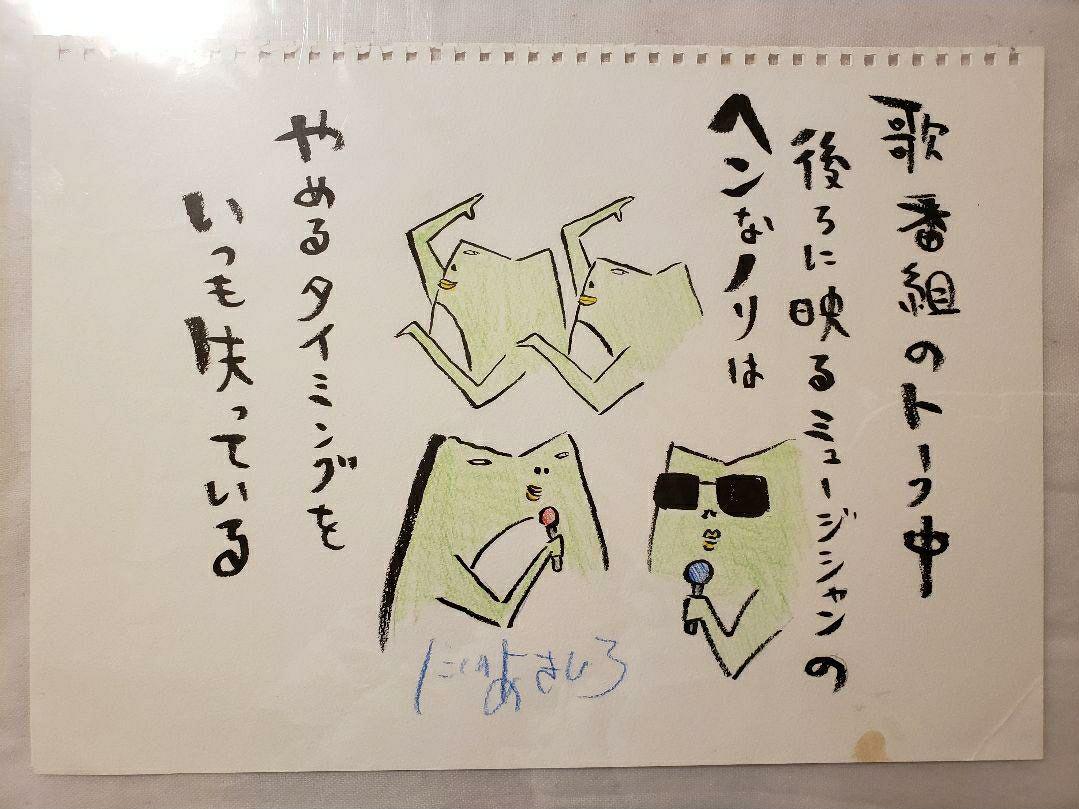 歌番組のトーク中
後ろに映るミュージシャンの
ヘンなノリは
やめるタイミングを
いつも失っている